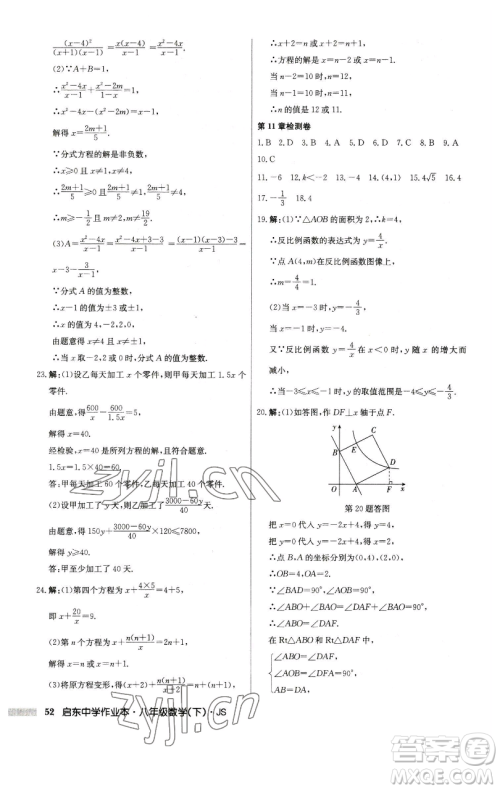 (x-4)²/(x+1)(x-1)·(x+1)/(x-4)=(x²-4x)/(x-1).
(2)∵A+B=1,
∴(x²-4x)/(x-1)-(x²-2m)/(x-1)=1,
解得 x=(2m+1)/5.
∵分式方程的解是非负数,
∴x≥0 且 x≠1,x≠4,
∴(2m+1)/5≥0 且(2m+1)/5≠1,(2m+1)/5≠4,
∴m≥-1/2且 m≠2,m≠19/2.
(3)A=(x²-4x)/(x-1)=(x²-4x+3-3)/(x-1)=(x-1)(x-3)-3/(x-1)=
x-3-3/(x-1).
∵分式 A 的值为整数,
∴x-1 的值为±3 或±1,
∴x 的值为 4,-2,2,0.
由题意得 x≠0,x≠4,
∴当 x=-2 或 2 时,分式 A 的值为整数.
23.解:(1)设乙每天加工 x 个零件,则甲每天加工 1.5x 个
零件.
由题意,得600/x=600/1.5x+5,
解得 x=40.
经检验,x=40 是所列方程的解且符合题意.
1.5x=1.5×40=60.
答:甲每天加工 60 个零件,乙每天加工 40 个零件.
由题意,得 150y+(3000-60y)/40×120≤7800,
解得 y≥40.
答:甲至少加工了 40 天.
24.解:(1)第四个方程为 x+(4×5)/x=4+5,
即 x+20/x=9.
(2)第 n 个方程为 x+n(n+1)/x=n+(n+1),
解得 x=n 或 x=n+1.
(3)将原方程变形,得(x+2)+n(n+1)/(x+2)=n+(n+1),
∴x+2=n 或 x+2=n+1,
∴方程的解是 x=n-2 或 x=n-1.
当 n-2=10 时,n=12;
当 n-1=10 时,n=11,
∴n 的值是 12 或 11.
第 11 章检测卷
1.B 2.D 3.A 4.D 5.B 6.C 7.B 8.D 9.A
10.C
11.-6 12.k<-2 13.m>4 14.(4,1) 15.4√5 16.4
17.-1/3 18.4
19.解:(1)∵△AOB 的面积为 2,∴k=4,
∴反比例函数的表达式为 y=4/x.
∵点 A(4,m)在反比例函数图像上,
∴m=4/4=1.
(2)当 x=-3 时,y=-4/3,
当 x=-1 时,y=-4.
又∵反比例函数 y=4/x在 x<0 时,y 随 x 的增大而
减小,
∴当-3≤x≤-1 时,y 的取值范围是-4≤y≤-4/3.
20.解:(1)如答图,作 DF⊥x 轴于点 F.
y
C
B
D
O
A
F
x
第 20 题答图
把 x=0 代入 y=-2x+4,得 y=4,
把 y=0 代入 y=-2x+4,得 x=2,
∴点 B,A 的坐标分别为(0,4),(2,0),
∴OB=4,OA=2.
∵∠AOB=∠BAD=90°,
∴∠ABO+∠BAO=∠BAO+∠DAF=90°,
∴∠ABO=∠DAF.
在 Rt△ABO 与 Rt△DAF 中,
∠ABO=∠DAF,
∠AOB=∠DFA=90°,
AB=DA,
52 启东中学作业本·八年级数学(下)·JS
zyjl.cn
zyjl.cn
答案圈
MXQE.COM